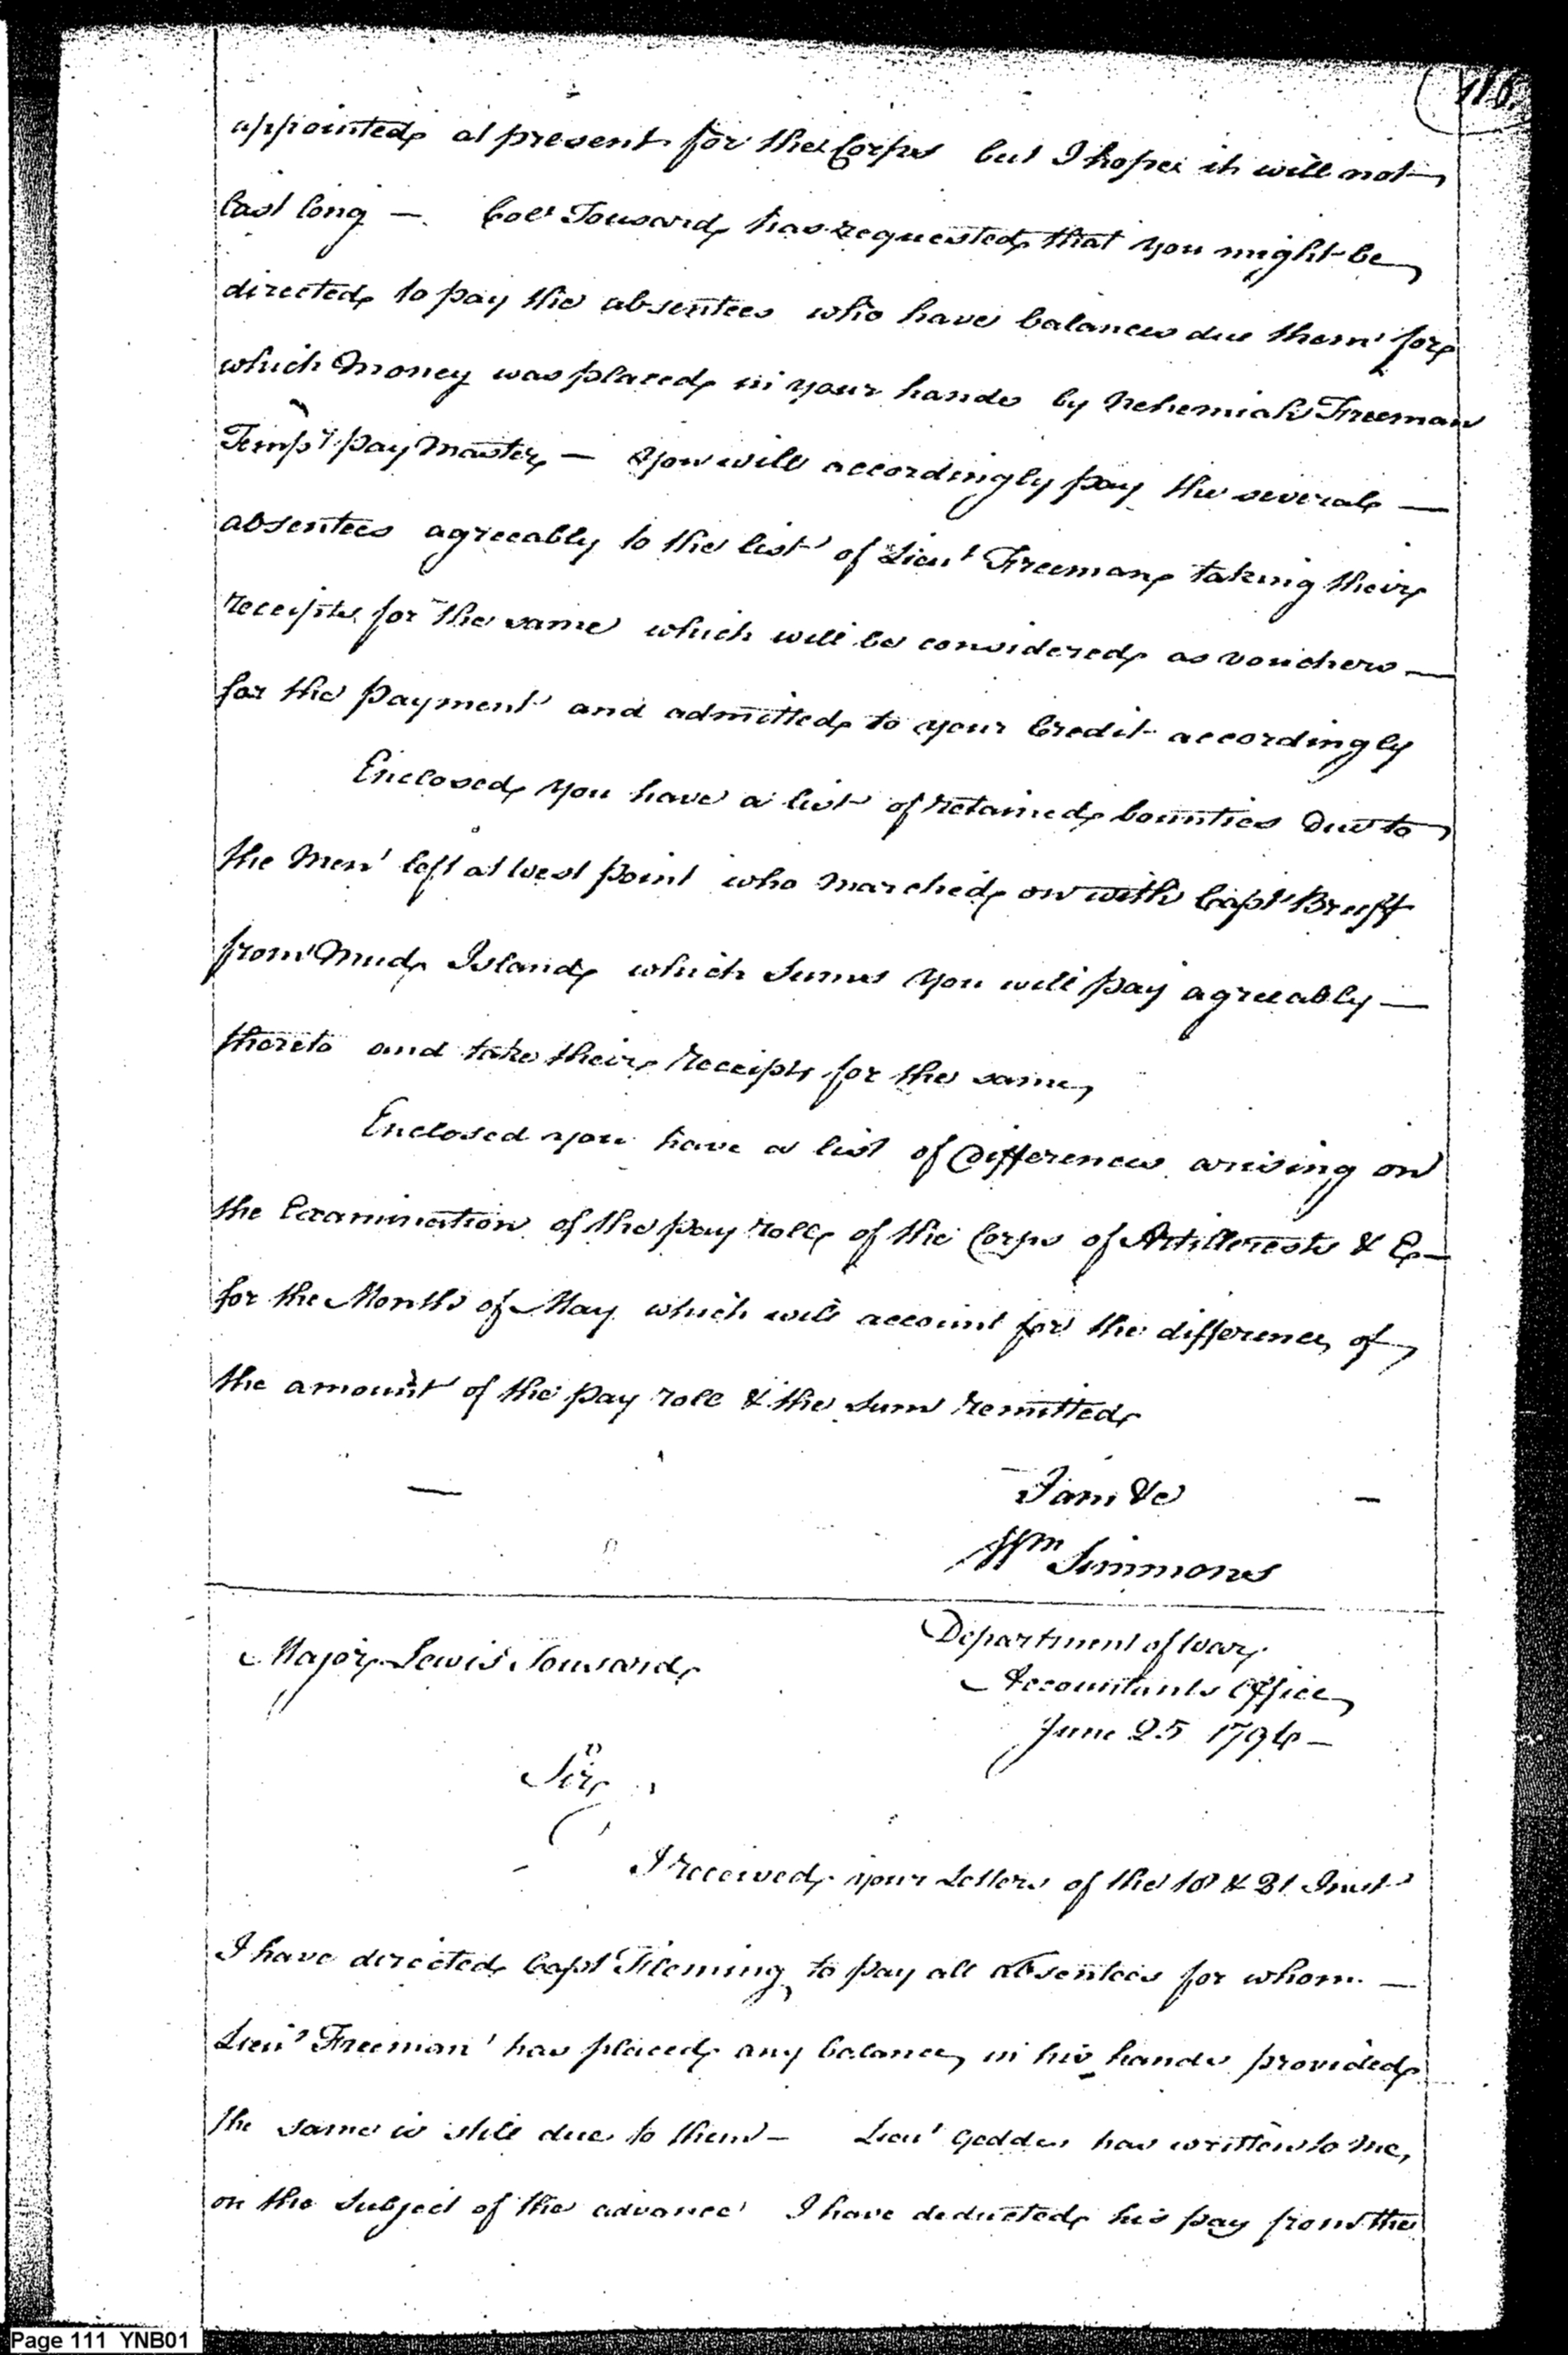 116
appointed at present for the Corps but I hope it will not
last long — Coll Tousard has requested that you might be
directed to pay the absentees who have balances due them for
which Money was placed in your hands by Nehemiah Freeman
Tempy pay Master — You will accordingly pay the several —
absentees agreeably to the list of Lieut Freeman taking their
receipts for the same which will be considered as vouchers —
for the payment and admitted to your Credit accordingly
Enclosed you have a list of retained bounties due to
the Men left at West point who marched on with Capt Bruff
from Mud Island which Sums you will pay agreeably —
thereto and take their receipts for the same,
Enclosed you have a list of differences arising on
the Examination of the pay roll of the Corps of Artillerests & E—
for the Month of May which will account for the difference of
the amount of the pay roll & the Sum remitted
— I am &c —
Wm Simmons
Department of War
Major Lewis Tousard
Accountants Office
June 25 1796 —
Sir,
I received your Letters of the 18 & 21 Inst
I have directed Capt Fleming to pay all absentees for whom —
Lieut Freeman has placed any balance in his hands provided
the same is still due to them — Lieut Geddes has written to me,
on the Subject of the advance I have deducted his pay from the
Page 111 YNB01